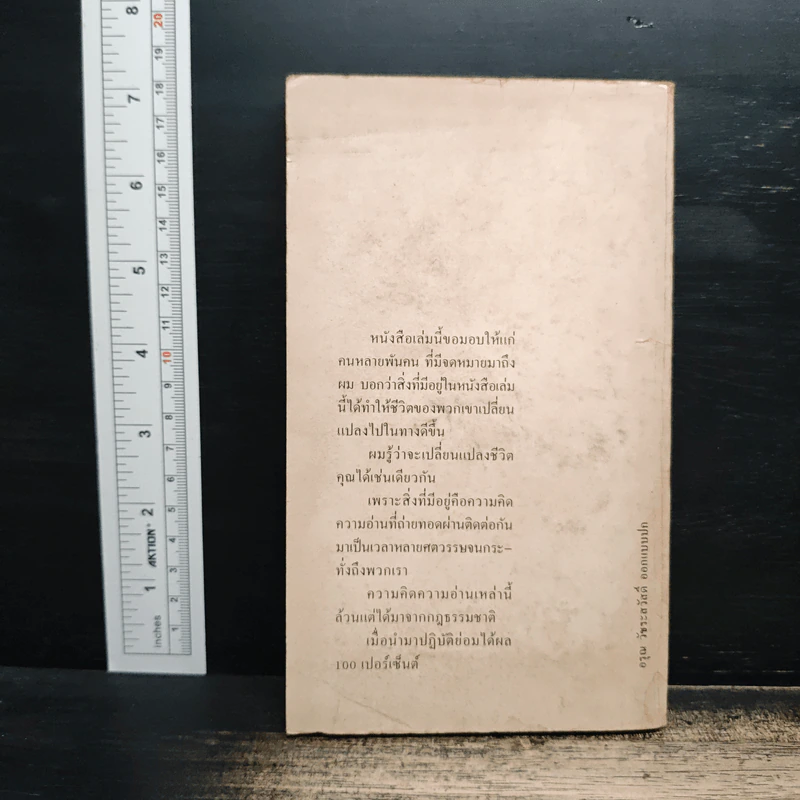 หนังสือเล่มนี้ขอมอบให้แก่
คนหลายพันคน ที่มีจดหมายมาถึง
ผม บอกว่าสิ่งที่มีอยู่ในหนังสือเล่ม
นี้ได้ทำให้ชีวิตของพวกเขาเปลี่ยน
แปลงไปในทางดีขึ้น
ผมรู้ว่าจะเปลี่ยนแปลงชีวิต
คุณได้เช่นเดียวกัน
เพราะสิ่งที่มีอยู่คือความคิด
ความอ่านที่ถ่ายทอดผ่านติดต่อกัน
มาเป็นเวลาหลายศตวรรษจนกระ-
ทั่งถึงพวกเรา
ความคิดความอ่านเหล่านี้
ล้วนแต่ได้มาจากกฎธรรมชาติ
เมื่อนำมาปฏิบัติย่อมได้ผล
100 เปอร์เซ็นต์
อรุณ วัชระสวัสดิ์ ออกแบบปก
8
7
6
5
4
3
2
1
inches
AKTION
20
19
18
17
16
15
14
13
12
11
10
9
8
7
6
5
4
3
2
1